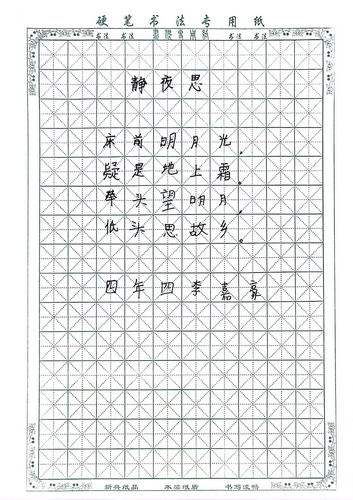 硬笔书法专用纸
书法 书法 书法 书法
静夜思
床前明月光，
疑是地上霜。
举头望明月，
低头思故乡。
四年四李嘉豪